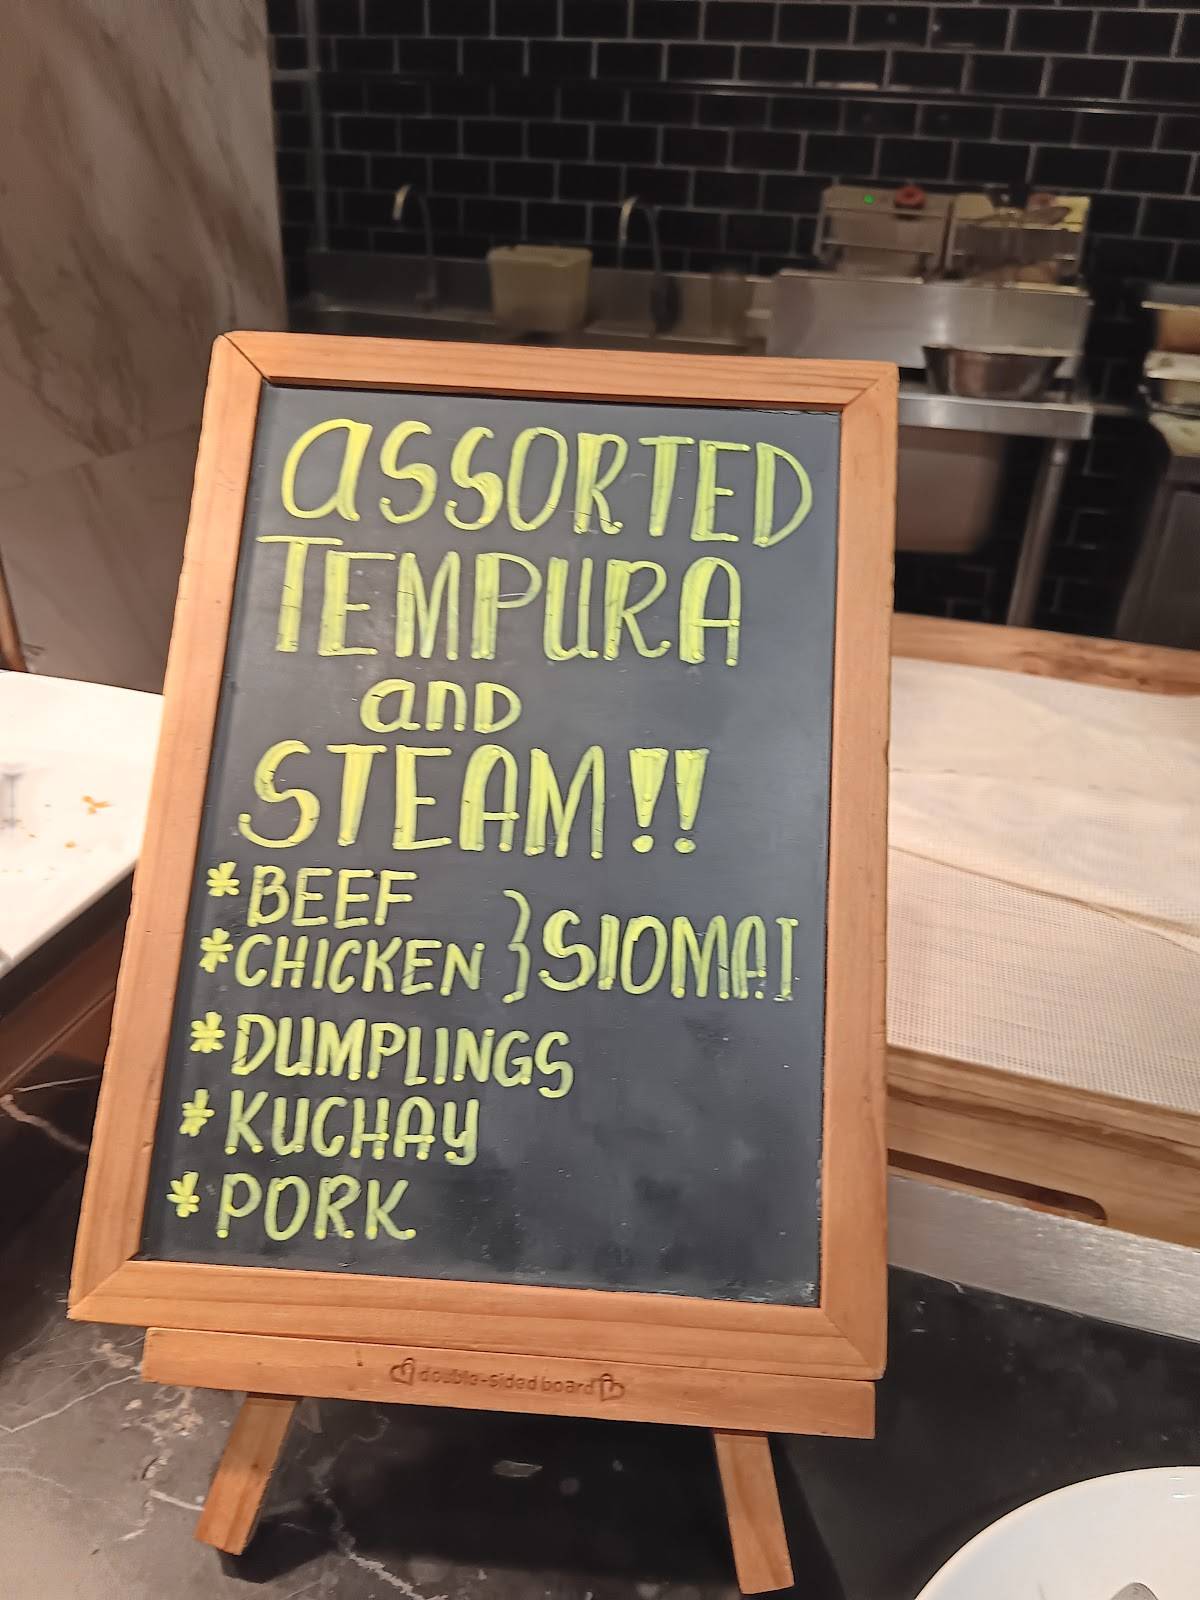 ASSORTED
TEMPURA
and
STEAM!!
* BEEF
* CHICKEN } SIOMAI
* DUMPLINGS
* KUCHAY
* PORK
double-sided board